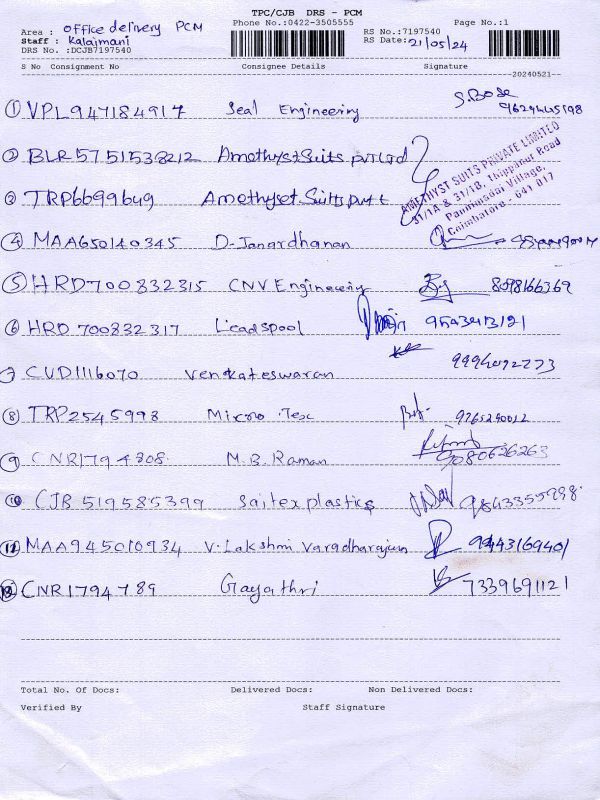 TPC/CJB DRS - PCM
Area : office delivery PCM
Phone No.:0422-3505555
Page No.:1
Staff : Kalaimani
RS No.:7197540
DRS No. :DCJB7197540
RS Date: 21/05/24
S No Consignment No Consignee Details Signature
--20240521--
1 VPL947184917 Seal Engineering S.Bose
2 BLR5751538212 Amethyst Suits pvt Ltd
AMETHYST SUITS PRIVATE LIMITED
31/1A & 31/1B, Thippanur Road
Pannimadai Village,
Coimbatore - 641 017
3 TRP6699649 Amethyset Suits pvt t
4 MAA650140345 D-Janardhanan
5 HRD700832315 CNV Engineering 8098166369
6 HRD 700832317 Leadspool
7 CUD1116070 Venkateswaran
8 TRP2545998 Micro Tex
9 CNR1794808 M.B. Raman 9080626263
10 CJB 519585399 Saitex plastics
11 MAA945010934 V. Lakshmi Varadharajan 9443169401
12 CNR1794789 Gayathri 7339691121
Total No. Of Docs: Delivered Docs: Non Delivered Docs:
Verified By Staff Signature